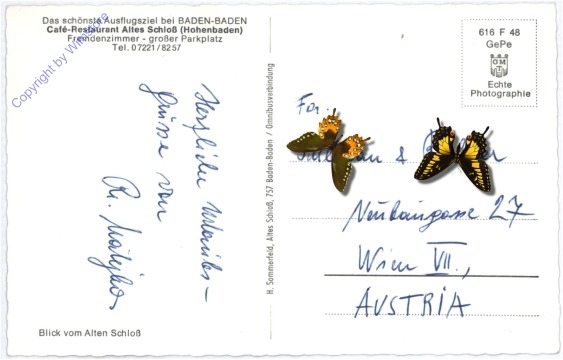 Das schönste Ausflugsziel bei BADEN-BADEN
Café-Restaurant Altes Schloß (Hohenbaden)
Fremdenzimmer - großer Parkplatz
Tel. 07221/8257
Copyright by
Herzliche Urlaubs-
Grüsse von
Blick vom Alten Schloß
H. Sommerfeld, Altes Schloß, 757 Baden-Baden / Omnibusverbindung
616 F 48
GePe
Echte
Photographie
&
Neubaugasse 27
Wien VII.,
AUSTRIA